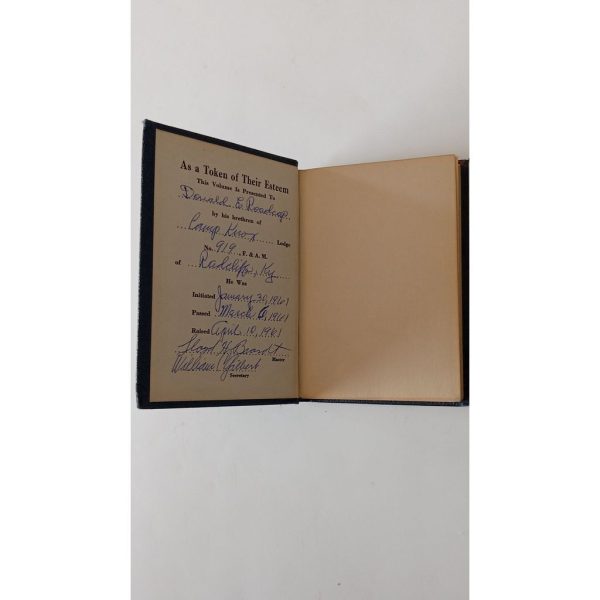 As a Token of Their Esteem
This Volume Is Presented To
Donald E. Roadcap
by his brethren of
Camp Knox Lodge
No. 919, F. & A. M.
of Radcliff, Ky
He Was
Initiated January 30, 1961
Passed March 6, 1961
Raised April 10, 1961
Floyd H.
Master
William C. Gilbert
Secretary